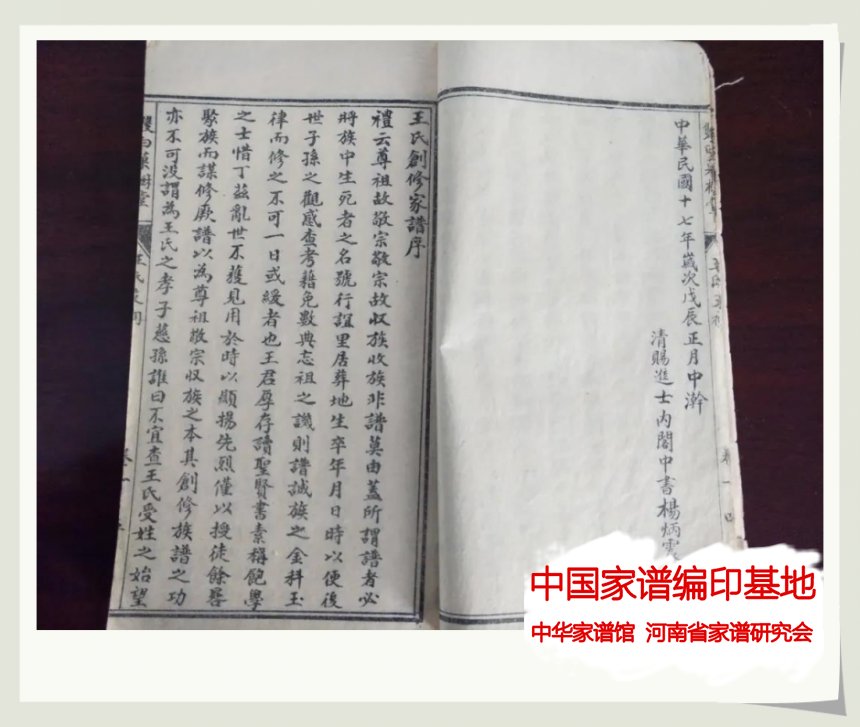 中華民國十七年歲次戊辰正月中澣
清賜進士内閣中書楊炳
王氏創修家譜序
禮云尊祖故敬宗敬宗故収族收族非譜莫由蓋所謂譜者必
將族中生死者之名號行誼里居葬地生卒年月日時以便後
世子孫之觀感查考藉免數典忘祖之譏則譜誠族之金科玉
律而修之不可一日或緩者也王君厚存讀聖賢書素稱飽學
之士惜丁兹亂世不獲見用於時以顯揚先烈僅以授徒餘晷
聚族而謀修厥譜以為尊祖敬宗収族之本其創修族譜之功
亦不可没謂為王氏之孝子慈孫誰曰不宜查王氏受姓之始望
中国家谱编印基地
中华家谱馆 河南省家谱研究会